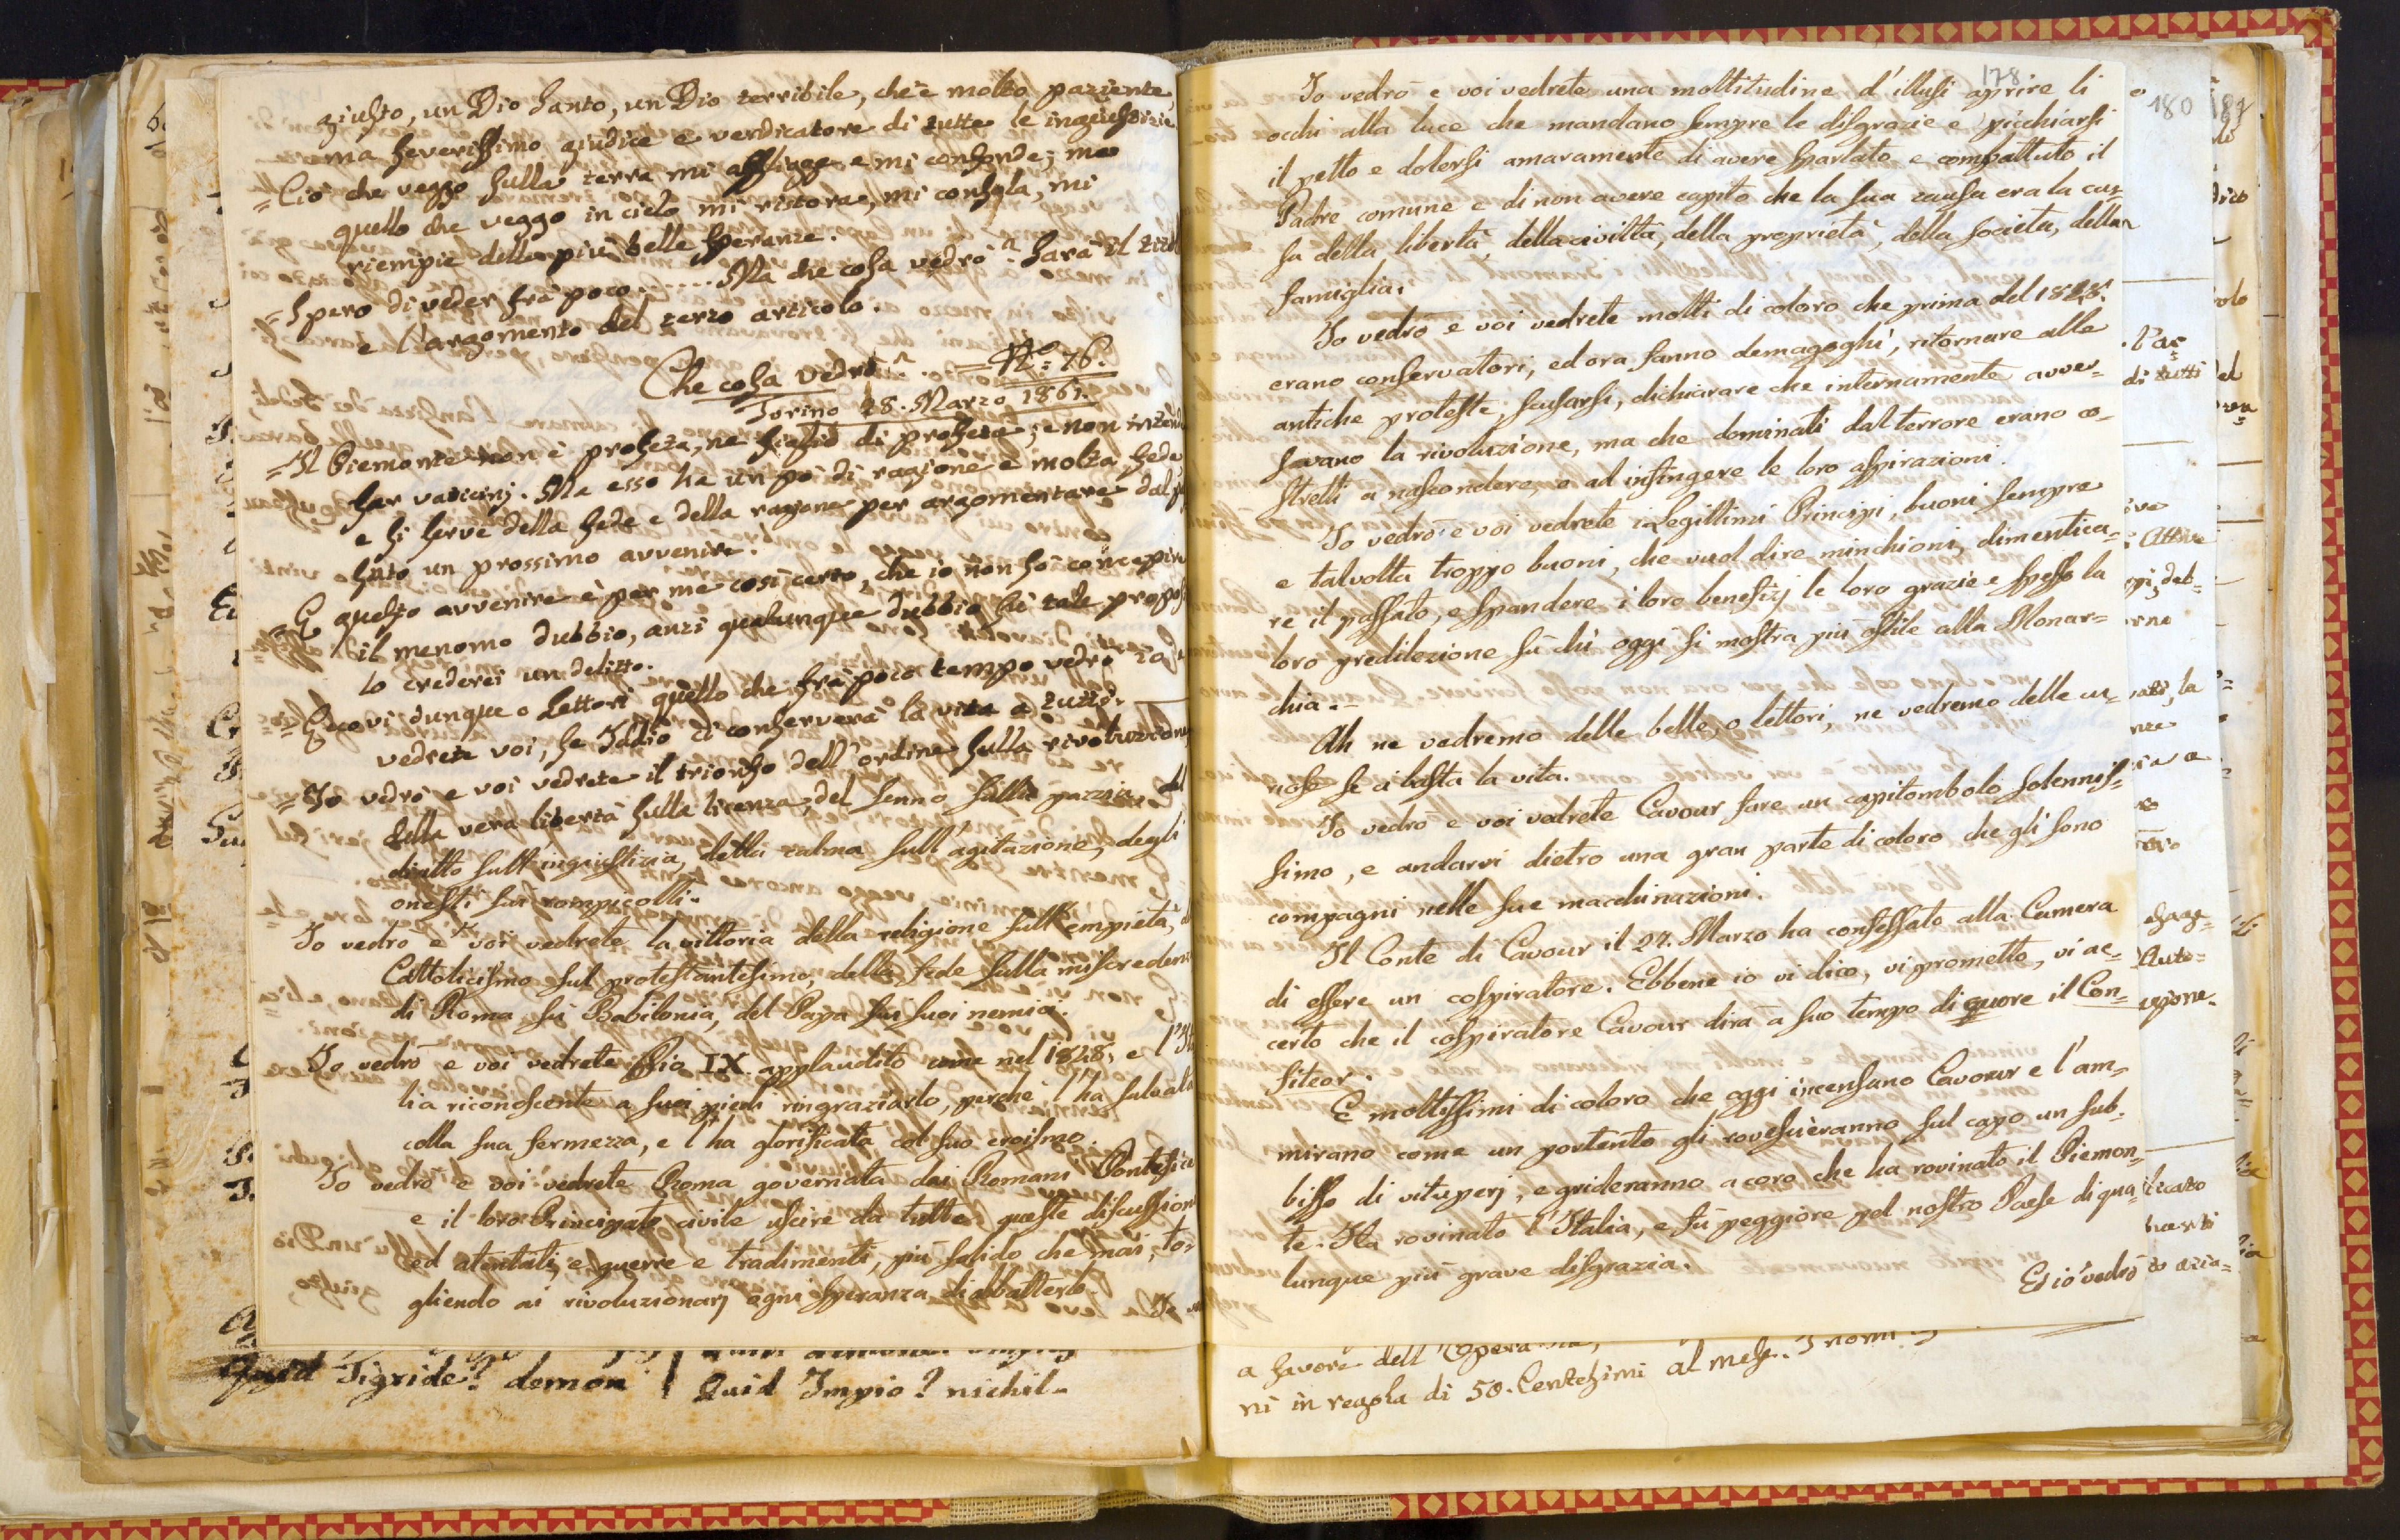 giusto, un Dio Santo, un Dio terribile, che è molto paziente,
ma severissimo giudice e vendicatore di tutte le ingiustizie.
= Ciò che veggo sulla terra mi affligge e mi confonde; ma
quello che veggo in cielo mi ristora, mi consola, mi
riempie delle più belle speranze.
= Spero di veder frà poco...... Ma che cosa vedrò? Sarà il
e l'argomento del terzo articolo.
Che cosa vedrò? = N.º 76.
Torino 28. Marzo 1861.
= Il Piemonte non è profeta, ne figlio di profeta; e non
far vaticinj. Ma esso ha un pò di ragione e molta fede,
e si serve della fede e della ragione per argomentare dal
suto un prossimo avvenire.
= E questo avvenire è per me così certo, che io non sò concepire
il menomo dubbio, anzi qualunque dubbio sù tale
lo crederei un delitto.
= Eccovi dunque o Lettori quello che frà poco tempo vedrò io, e
vedrete voi, se Iddio ci conserverà la vita a tutti.
= Io vedrò e voi vedrete il trionfo dell'ordine sulla rivoluzione,
della vera libertà sulla licenza, del senno sulla pazzia, del
diritto sull'ingiustizia, della calma sull'agitazione, degli
onesti sui rompicolli.
Io vedrò e voi vedrete la vittoria della religione sull'empietà,
Cattolicismo sul protestantesimo, della fede sulla miscredenza
di Roma sù Babilonia, del Papa sui suoi nemici.
Io vedrò e voi vedrete Pio IX. applaudito come nel 1848. e l'
lia riconoscente a suoi piedi ringraziarlo, perchè l'ha salvata
colla sua fermezza, e l'ha glorificata col suo eroismo.
Io vedrò e voi vedrete Roma governata dai Romani
e il loro Principato civile uscire da tutte queste discussioni
ed atentati, e guerre e tradimenti, più solido che mai, to=
gliendo ai rivoluzionarj ogni speranza di abbatterlo.
Io
Quid Tigride? demon | Quid Impio? nichil.
178
Io vedrò e voi vedrete una moltitudine d'illusi aprire li
occhi alla luce che mandano sempre le disgrazie e picchiarsi
il petto e dolersi amaramente di avere sparlato e combattuto il
Padre comune e di non avere capito che la sua causa era la cau=
sa della libertà, della civiltà, della proprietà, della società, della
famiglia.
Io vedrò e voi vedrete molti di coloro che prima del 1848.
erano conservatori, ed ora fanno demagoghi, ritornare alle
antiche proteste, scusarsi, dichiarare che internamente avver=
savano la rivoluzione, ma che dominati dal terrore erano co=
stretti a nascondere, e ad infingere le loro aspirazioni.
Io vedrò e voi vedrete i Legittimi Principi, buoni sempre
e talvolta troppo buoni, che vuol dire minchioni, dimentica=
re il passato, e spandere i loro benefizj le loro grazie e spesso la
loro predilezione sù chi oggi si mostra più ostile alla Monar=
chia.
Ah ne vedremo delle belle, o lettori, ne vedremo delle cu=
riose se ci basta la vita.
Io vedrò e voi vedrete Cavour fare un capitombolo solennis=
simo, e andarvi dietro una gran parte di coloro che gli sono
compagni nelle sue macchinazioni.
Il Conte di Cavour il 27. Marzo ha confessato alla Camera
di essere un cospiratore. Ebbene io vi dico, vi prometto, vi ac=
certo che il cospiratore Cavour dirà a suo tempo di cuore il Con=
fiteor.
E moltissimi di coloro che oggi incensano Cavour e l'am=
mirano come un portento gli rovescieranno sul capo un sub=
bisso di vituperj, e grideranno a coro che ha rovinato il Piemon=
te. Ha rovinato l'Italia, e fù peggiore pel nostro Paese di qua=
lunque più grave disgrazia.
Ed io vedrò
a favore dell'Opera
ni in regola di 50. Centesimi al mese. I nomi
180